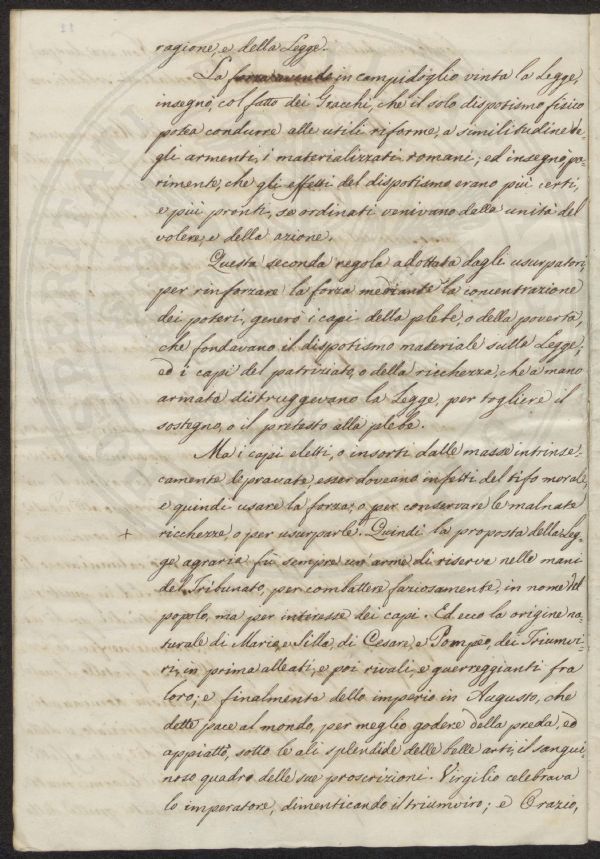 ragione, e della Legge.
La forza avendo in campidoglio vinta la Legge,
insegnò, col fatto dei Gracchi, che il solo dispotismo fisico
potea condurre alle utili riforme, a similitudine de-
gli armenti, i materializzati romani; ed insegnò pa-
rimente, che gli effetti del dispotismo erano più certi,
e più pronti, se ordinati venivano dalla unità del
volere, e della azione.
Questa seconda regola adottata dagli usurpatori,
per rinforzare la forza mediante la concentrazione
dei poteri, generò i capi della plebe, o della povertà,
che fondavano il dispotismo materiale sulla Legge;
ed i capi del patriziato, o della ricchezza, che a mano
armata distruggevano la Legge, per togliere il
sostegno, o il pretesto alla plebe.
Ma i capi eletti, o insorti dalle masse intrinse-
camente depravate, esser doveano infetti del tifo morale,
e quindi usare la forza, o per conservare le malnate
+ ricchezze, o per usurparle. Quindi la proposta della Leg-
ge agraria fù sempre un'arme di riserva nelle mani
del Tribunato, per combattere faziosamente, in nome del
popolo, ma per interesse dei capi. Ed ecco la origine na-
turale di Mario, e Silla, di Cesare, e Pompeo, dei Triumvi-
ri, in prima alleati, e poi rivali, e guerreggianti fra
loro; e finalmente dello imperio in Augusto, che
dette pace al mondo, per meglio godere della preda, ed
appiattò, sotto le ali splendide delle belle arti, il sangui-
noso quadro delle sue proscrizioni. Virgilio celebrava
lo imperatore, dimenticando il triumviro; e Orazio,